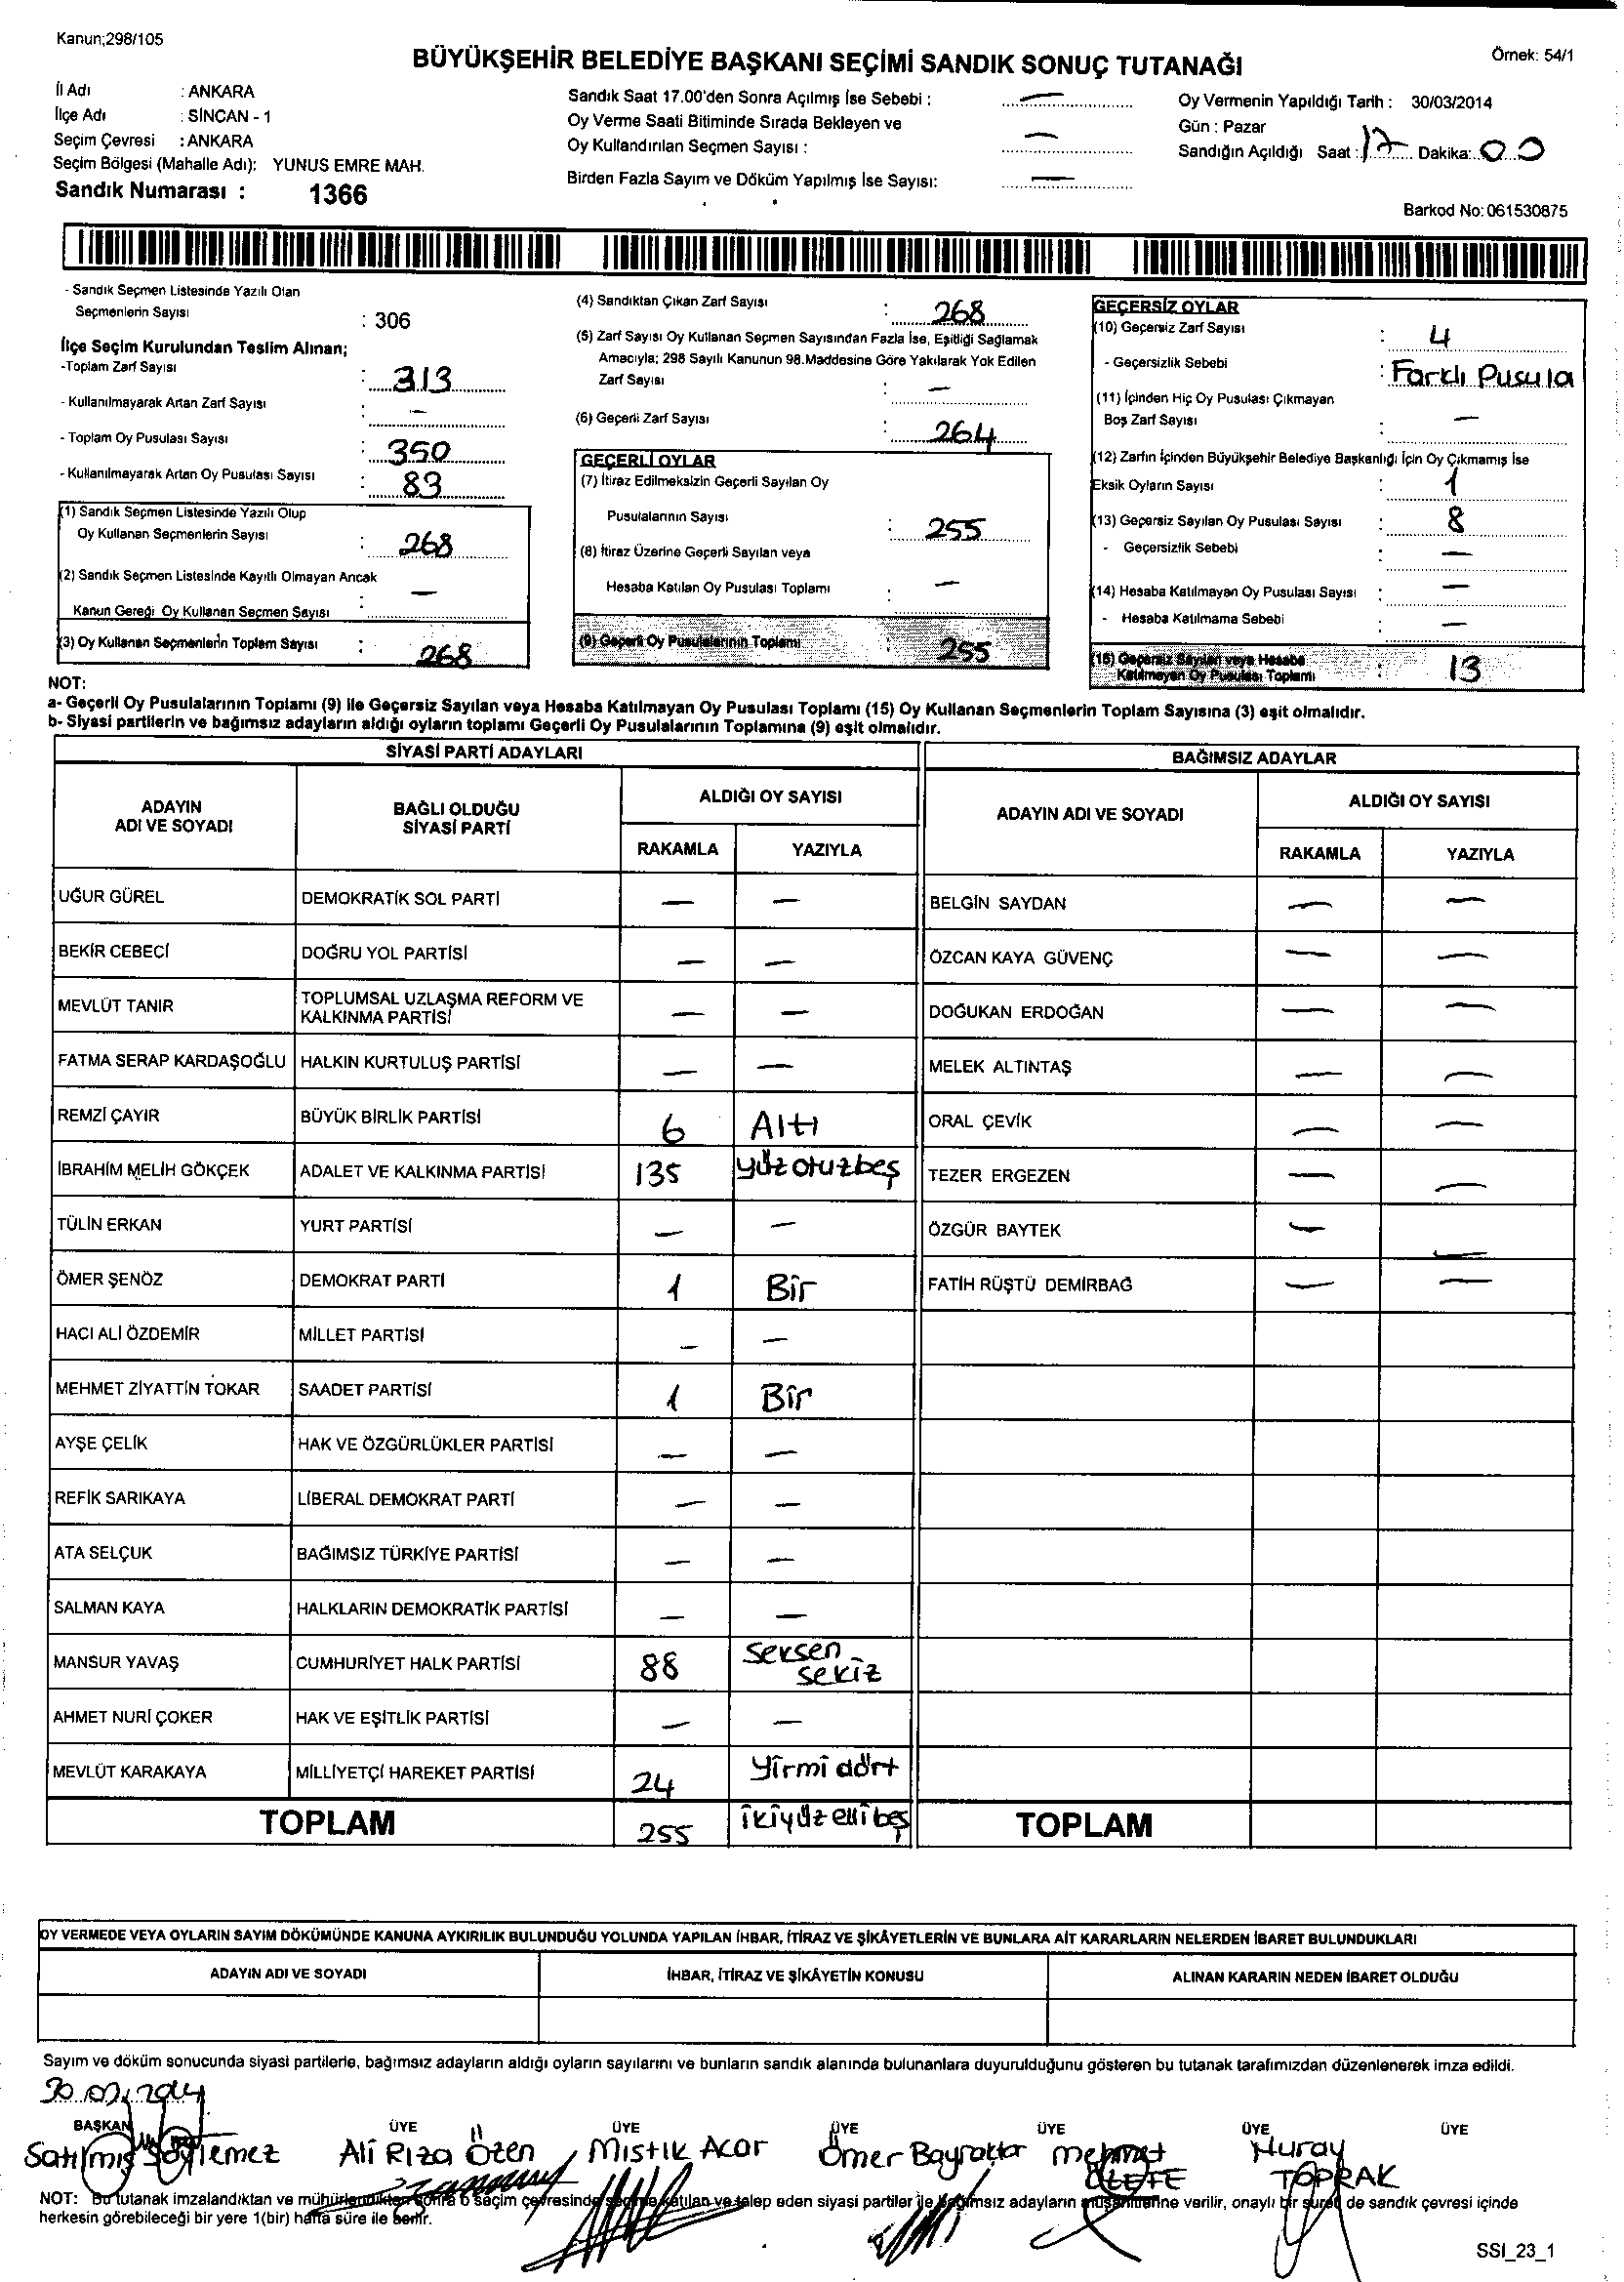 Kanun;298/105
BÜYÜKŞEHİR BELEDİYE BAŞKANI SEÇİMİ SANDIK SONUÇ TUTANAĞI
Örnek: 54/1
İl Adı : ANKARA
İlçe Adı : SİNCAN - 1
Seçim Çevresi : ANKARA
Seçim Bölgesi (Mahalle Adı): YUNUS EMRE MAH.
Sandık Numarası : 1366
Sandık Saat 17.00'den Sonra Açılmış İse Sebebi : —
Oy Verme Saati Bitiminde Sırada Bekleyen ve
Oy Kullandırılan Seçmen Sayısı : —
Birden Fazla Sayım ve Döküm Yapılmış İse Sayısı: —
Oy Vermenin Yapıldığı Tarih : 30/03/2014
Gün : Pazar
Sandığın Açıldığı Saat : 17 Dakika: 00
Barkod No: 061530875
- Sandık Seçmen Listesinde Yazılı Olan
Seçmenlerin Sayısı : 306
İlçe Seçim Kurulundan Teslim Alınan;
-Toplam Zarf Sayısı : 313
- Kullanılmayarak Artan Zarf Sayısı : —
- Toplam Oy Pusulası Sayısı : 350
- Kullanılmayarak Artan Oy Pusulası Sayısı : 83
(1) Sandık Seçmen Listesinde Yazılı Olup
Oy Kullanan Seçmenlerin Sayısı : 268
(2) Sandık Seçmen Listesinde Kayıtlı Olmayan Ancak
Kanun Gereği Oy Kullanan Seçmen Sayısı : —
(3) Oy Kullanan Seçmenlerin Toplam Sayısı : 268
(4) Sandıktan Çıkan Zarf Sayısı : 268
(5) Zarf Sayısı Oy Kullanan Seçmen Sayısından Fazla İse, Eşitliği Sağlamak
Amacıyla; 298 Sayılı Kanunun 98.Maddesine Göre Yakılarak Yok Edilen
Zarf Sayısı : —
(6) Geçerli Zarf Sayısı : 264
GEÇERLİ OYLAR
(7) İtiraz Edilmeksizin Geçerli Sayılan Oy
Pusulalarının Sayısı : 255
(8) İtiraz Üzerine Geçerli Sayılan veya
Hesaba Katılan Oy Pusulası Toplamı : —
(9) Geçerli Oy Pusulalarının Toplamı : 255
GEÇERSİZ OYLAR
(10) Geçersiz Zarf Sayısı : 4
- Geçersizlik Sebebi : Farklı Pusula
(11) İçinden Hiç Oy Pusulası Çıkmayan
Boş Zarf Sayısı : —
(12) Zarfın İçinden Büyükşehir Belediye Başkanlığı İçin Oy Çıkmamış İse
Eksik Oyların Sayısı : 1
(13) Geçersiz Sayılan Oy Pusulası Sayısı : 8
- Geçersizlik Sebebi : —
(14) Hesaba Katılmayan Oy Pusulası Sayısı : —
- Hesaba Katılmama Sebebi : —
(15) Geçersiz Sayılan veya Hesaba
Katılmayan Oy Pusulası Toplamı : 13
NOT:
a- Geçerli Oy Pusulalarının Toplamı (9) ile Geçersiz Sayılan veya Hesaba Katılmayan Oy Pusulası Toplamı (15) Oy Kullanan Seçmenlerin Toplam Sayısına (3) eşit olmalıdır.
b- Siyasi partilerin ve bağımsız adayların aldığı oyların toplamı Geçerli Oy Pusulalarının Toplamına (9) eşit olmalıdır.
SİYASİ PARTİ ADAYLARI
BAĞIMSIZ ADAYLAR
ADAYIN ADI VE SOYADI
BAĞLI OLDUĞU SİYASİ PARTİ
ALDIĞI OY SAYISI
RAKAMLA YAZIYLA
ADAYIN ADI VE SOYADI
ALDIĞI OY SAYISI
RAKAMLA YAZIYLA
UĞUR GÜREL DEMOKRATİK SOL PARTİ — — BELGİN SAYDAN — —
BEKİR CEBECİ DOĞRU YOL PARTİSİ — — ÖZCAN KAYA GÜVENÇ — —
MEVLÜT TANIR TOPLUMSAL UZLAŞMA REFORM VE KALKINMA PARTİSİ — — DOĞUKAN ERDOĞAN — —
FATMA SERAP KARDAŞOĞLU HALKIN KURTULUŞ PARTİSİ — — MELEK ALTINTAŞ — —
REMZİ ÇAYIR BÜYÜK BİRLİK PARTİSİ 6 Altı ORAL ÇEVİK — —
İBRAHİM MELİH GÖKÇEK ADALET VE KALKINMA PARTİSİ 135 yüzotuzbeş TEZER ERGEZEN — —
TÜLİN ERKAN YURT PARTİSİ — — ÖZGÜR BAYTEK — —
ÖMER ŞENÖZ DEMOKRAT PARTİ 1 Bir FATİH RÜŞTÜ DEMİRBAĞ — —
HACI ALİ ÖZDEMİR MİLLET PARTİSİ — —
MEHMET ZİYATTİN TOKAR SAADET PARTİSİ 1 Bir
AYŞE ÇELİK HAK VE ÖZGÜRLÜKLER PARTİSİ — —
REFİK SARIKAYA LİBERAL DEMOKRAT PARTİ — —
ATA SELÇUK BAĞIMSIZ TÜRKİYE PARTİSİ — —
SALMAN KAYA HALKLARIN DEMOKRATİK PARTİSİ — —
MANSUR YAVAŞ CUMHURİYET HALK PARTİSİ 88 seksen sekiz
AHMET NURİ ÇOKER HAK VE EŞİTLİK PARTİSİ — —
MEVLÜT KARAKAYA MİLLİYETÇİ HAREKET PARTİSİ 24 Yirmi dört
TOPLAM 255 ikiyüzellibeş TOPLAM
OY VERMEDE VEYA OYLARIN SAYIM DÖKÜMÜNDE KANUNA AYKIRILIK BULUNDUĞU YOLUNDA YAPILAN İHBAR, İTİRAZ VE ŞİKÂYETLERİN VE BUNLARA AİT KARARLARIN NELERDEN İBARET BULUNDUKLARI
ADAYIN ADI VE SOYADI İHBAR, İTİRAZ VE ŞİKÂYETİN KONUSU ALINAN KARARIN NEDEN İBARET OLDUĞU
Sayım ve döküm sonucunda siyasi partilerle, bağımsız adayların aldığı oyların sayılarını ve bunların sandık alanında bulunanlara duyurulduğunu gösteren bu tutanak tarafımızdan düzenlenerek imza edildi.
30.03.2014
BAŞKAN ÜYE ÜYE ÜYE ÜYE ÜYE ÜYE
Satılmış Söylemez Ali Rıza Özen Mıstık Acar Ömer Bayraktar Mehmet Nuray TOPRAK
NOT: Bu tutanak imzalandıktan ve mühürlendikten sonra o seçim çevresinde seçime katılan ve talep eden siyasi partiler ile bağımsız adayların müşahitlerine verilir, onaylı bir sureti de sandık çevresi içinde
herkesin görebileceği bir yere 1(bir) hafta süre ile asılır.
SSI_23_1